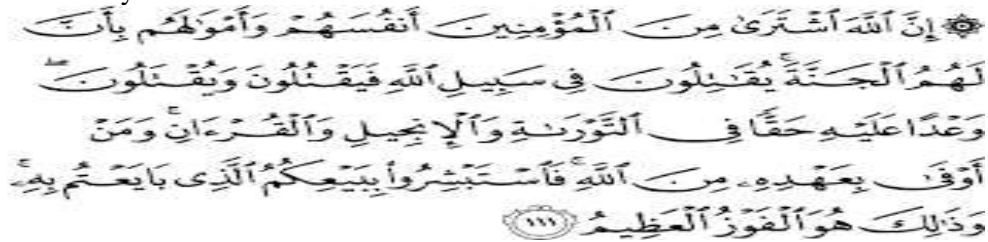 ۞ إِنَّ ٱللَّهَ ٱشْتَرَىٰ مِنَ ٱلْمُؤْمِنِينَ أَنفُسَهُمْ وَأَمْوَٰلَهُم بِأَنَّ
لَهُمُ ٱلْجَنَّةَ ۚ يُقَٰتِلُونَ فِى سَبِيلِ ٱللَّهِ فَيَقْتُلُونَ وَيُقْتَلُونَ ۖ
وَعْدًا عَلَيْهِ حَقًّا فِى ٱلتَّوْرَىٰةِ وَٱلْإِنجِيلِ وَٱلْقُرْءَانِ ۚ وَمَنْ
أَوْفَىٰ بِعَهْدِهِۦ مِنَ ٱللَّهِ ۚ فَٱسْتَبْشِرُوا۟ بِبَيْعِكُمُ ٱلَّذِى بَايَعْتُم بِهِۦ ۚ
وَذَٰلِكَ هُوَ ٱلْفَوْزُ ٱلْعَظِيمُ ١١١